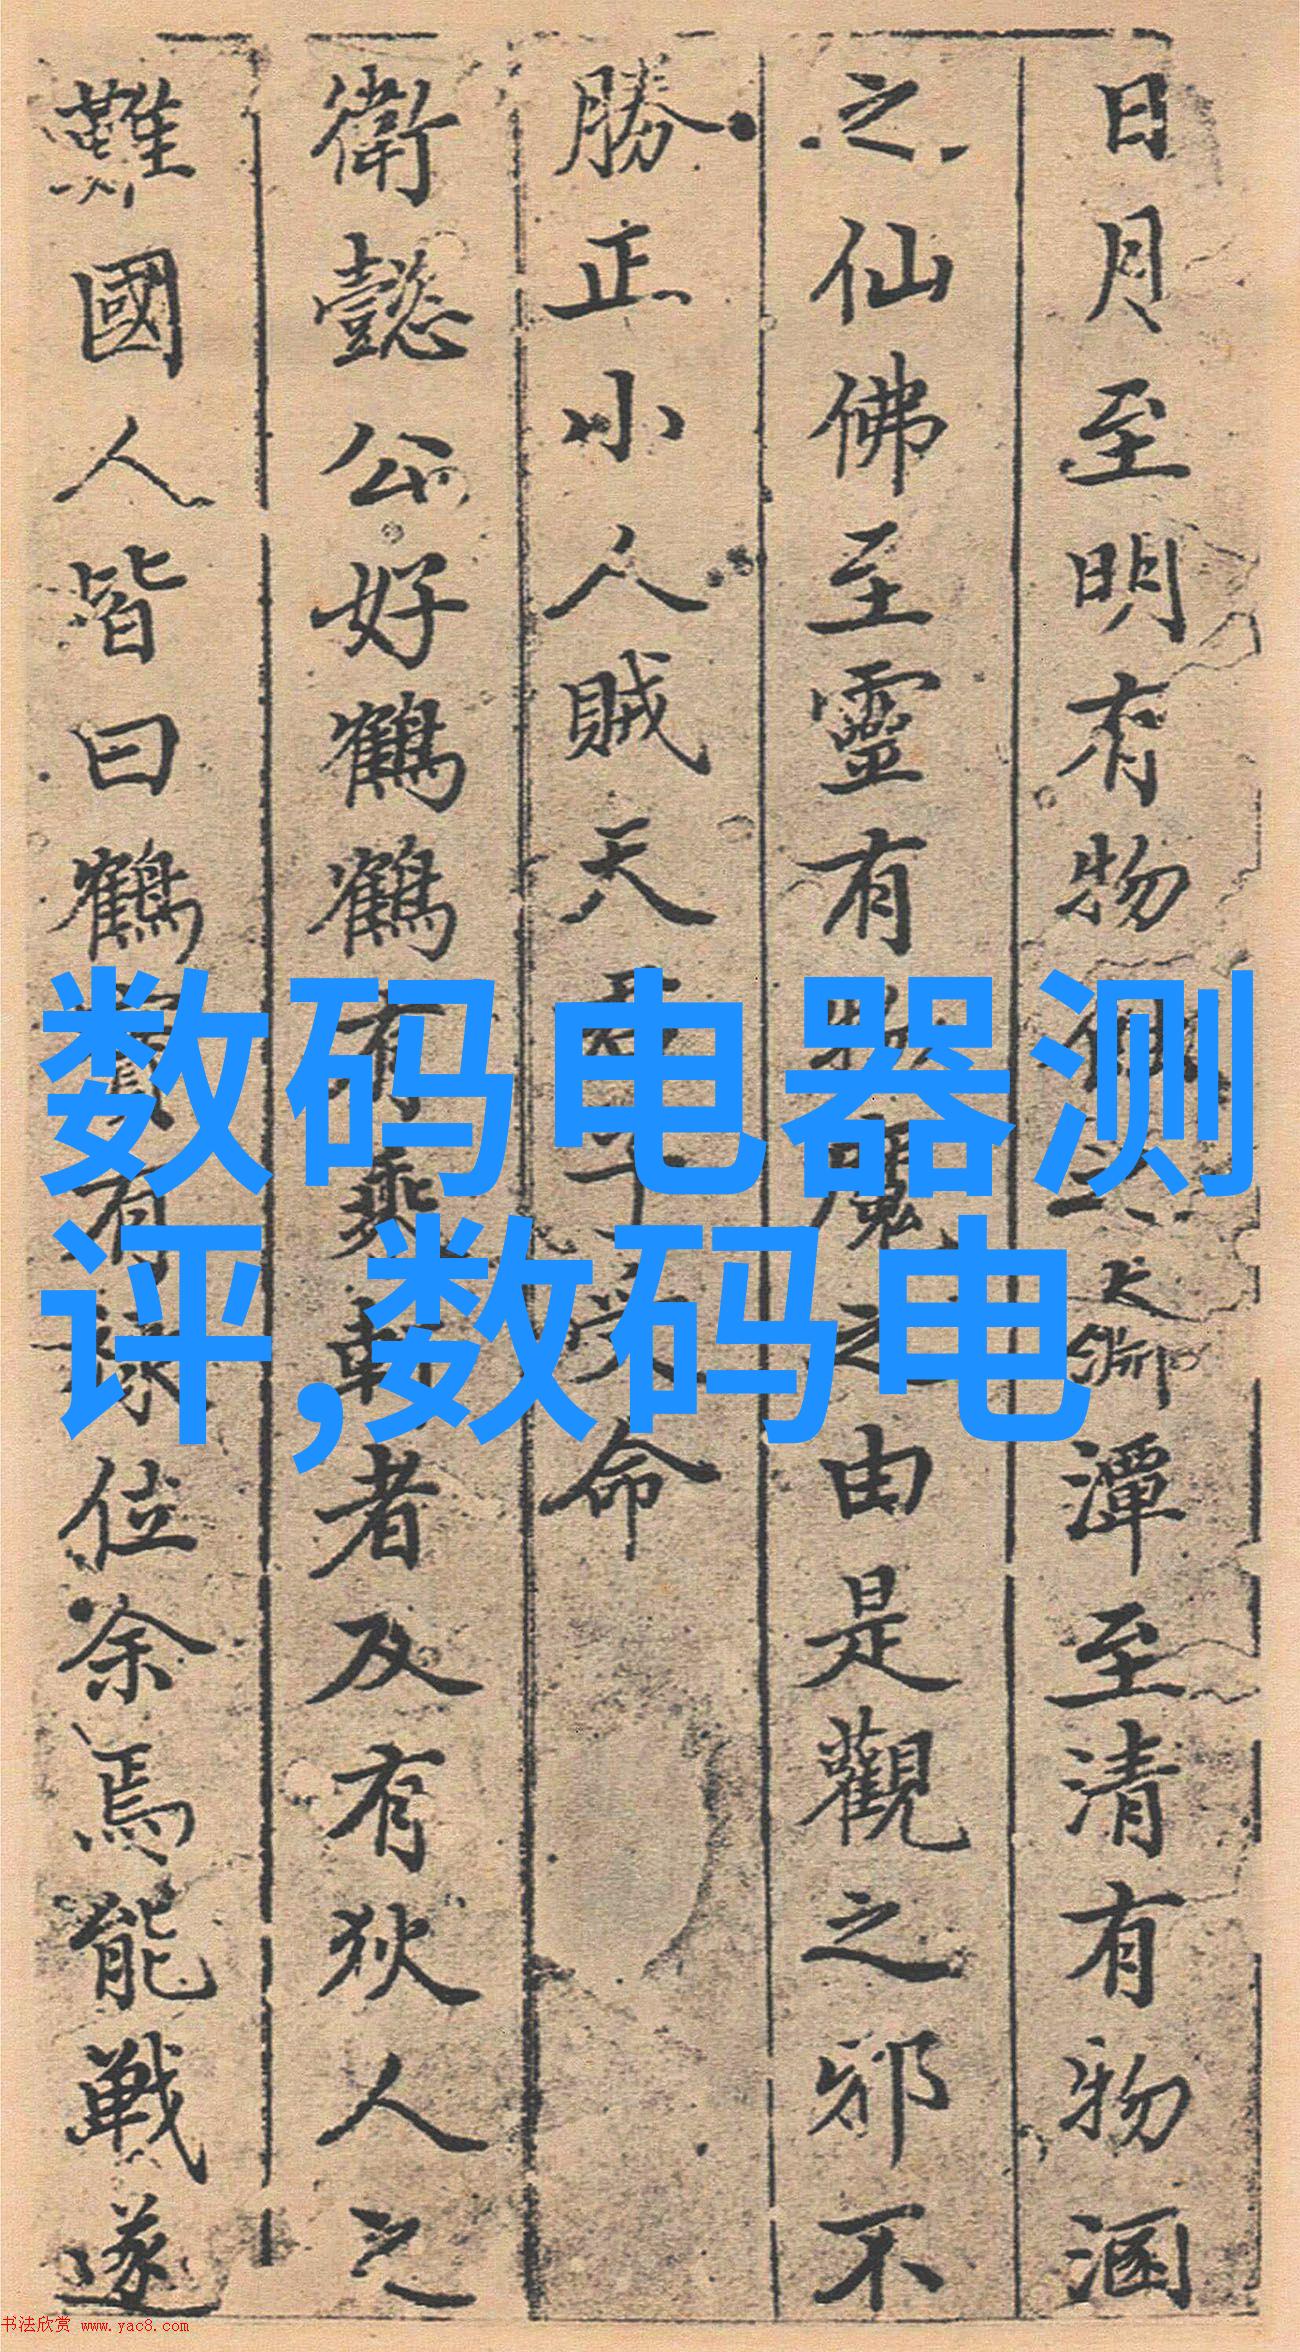 日月至明有物之潭至清有物涵
之仙佛至靈有魔之由是觀之邪不
勝正小人賊天受命
衛懿公好鶴鶴有乘軒者及有狄人之
難國人皆曰鶴有祿位余焉能戰遂
数码电器测
评,数码电
书法欣赏 www.yac8.com